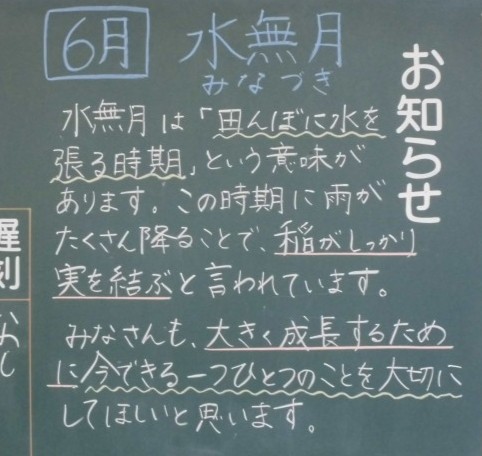 お知らせ
6月 水無月
みなづき
水無月は「田んぼに水を
張る時期」という意味が
あります。この時期に雨が
たくさん降ることで、稲がしっかり
実を結ぶと言われています。
みなさんも、大きく成長するため
に今できる一つひとつのことを大切に
してほしいと思います。
遅刻
なし